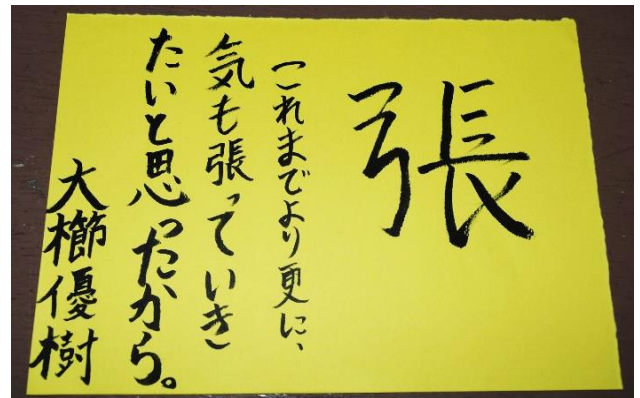 張
これまでより更に、
気も張っていき
たいと思ったから。
大櫛優樹